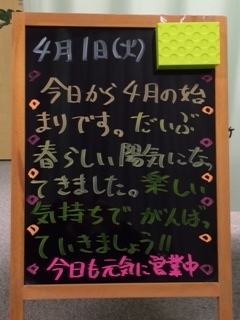 4月1日(火)
今日から4月の始
まりです。だいぶ
春らしい陽気になっ
てきました。楽しい
気持ちで、がんばっ
ていきましょう!!
今日も元気に営業中